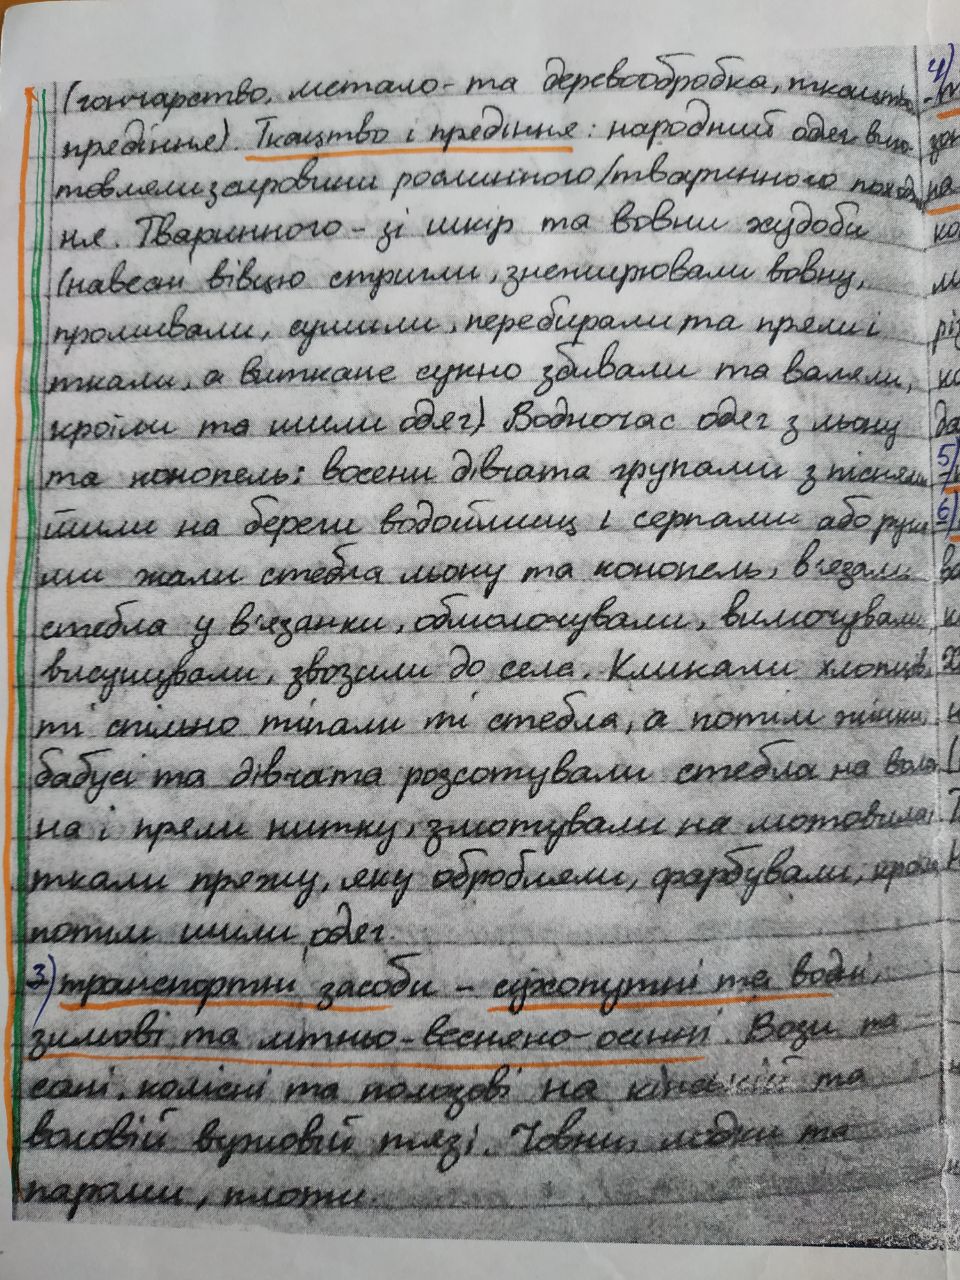 (гончарство, метало- та деревообробка, ткацтво,
предіння). Ткацтво і предіння: народний одяг виго-
товляли з сировини рослинного/тваринного походжен
ня. Тваринного - зі шкір та вовни худоби
(навесні вівцю стригли, знежирювали вовну,
промивали, сушили, перебирали та пряли і
ткали, а виткане сукно збивали та валяли,
кроїли та шили одяг). Водночас одяг з льону
та конопель: восени дівчата групами з піснями
йшли на береги водоймищ і серпами або рука
ми жали стебла льону та конопель, в'язали
стебла у в'язанки, обмолочували, вимочували,
висушували, звозили до села. Кликали хлопців,
ті спільно тіпали ті стебла, а потім жінки,
бабусі та дівчата розсотували стебла на воло
на і пряли нитку, змотували на мотовила,
ткали пряжу, яку обробляли, фарбували, кроїли
потім шили одяг.
3) транспортні засоби - сухопутні та водні,
зимові та літньо-весняно-осінні. Вози та
сані, колісні та полозові на кінській та
воловій вузловій тязі. Човни, лодки та
пароми, плоти.
4)
5)
6)